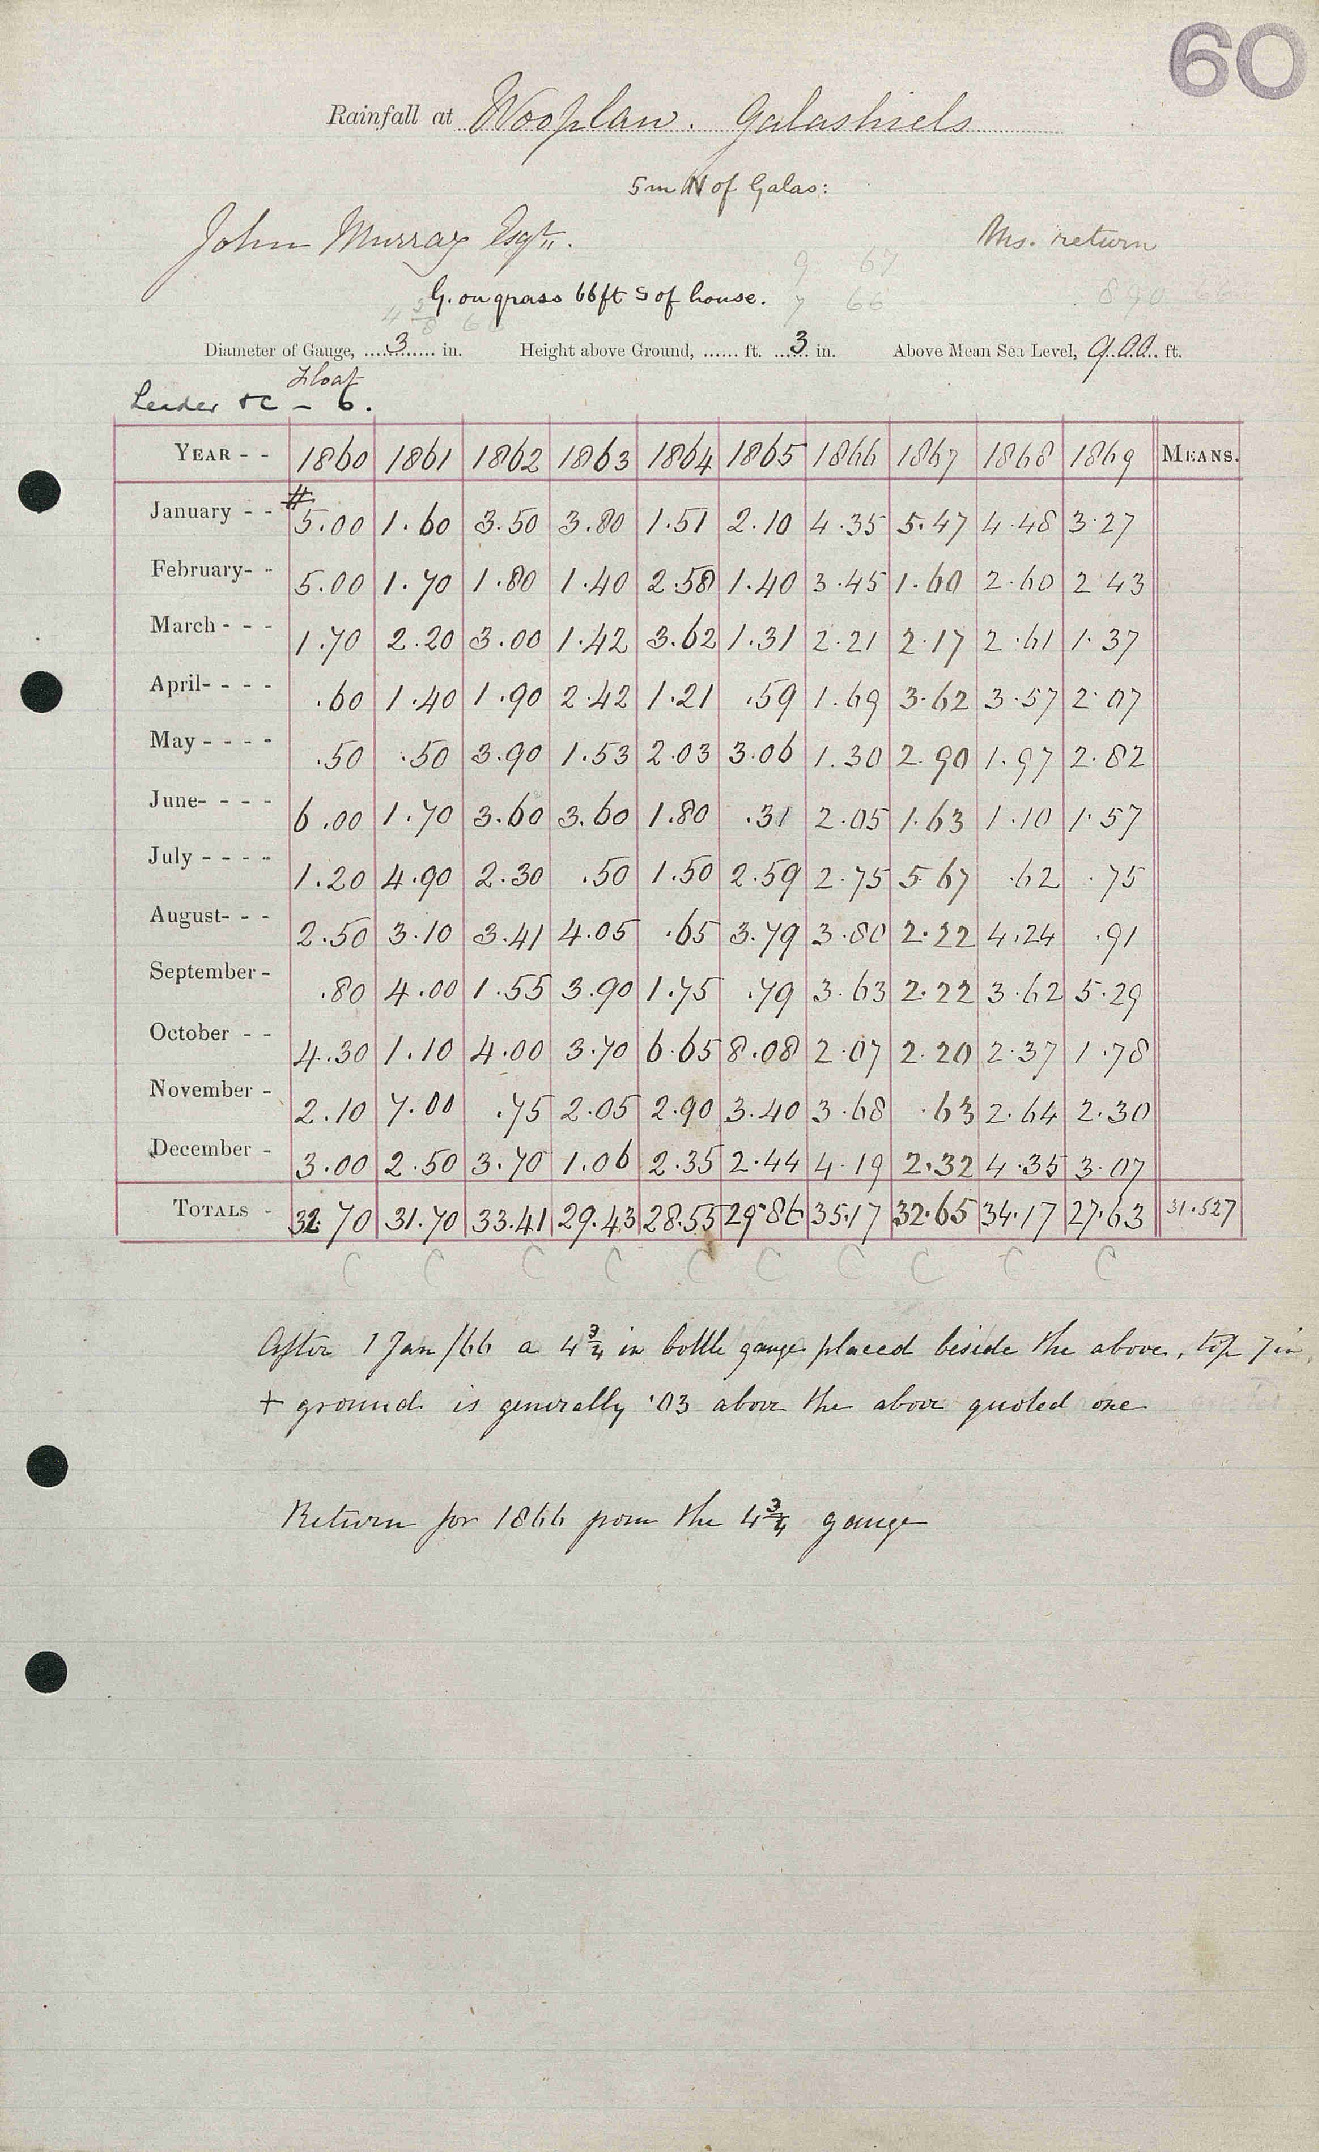 60
Rainfall at Wooplaw. Galashiels
5m N of Galas:
John Murray Esqr.
Ms. return
9 67
G. on grass 66ft S of house.
7 66
890 66
Diameter of Gauge, 3 in. Height above Ground, ...... ft. 3 in. Above Mean Sea Level, 900 ft.
Float
Leader &c – 6.
YEAR - - 1860 1861 1862 1863 1864 1865 1866 1867 1868 1869 MEANS.
#
January - - 5.00 1.60 3.50 3.80 1.51 2.10 4.35 5.47 4.48 3.27
February- - 5.00 1.70 1.80 1.40 2.58 1.40 3.45 1.60 2.60 2.43
March - - - 1.70 2.20 3.00 1.42 3.62 1.31 2.21 2.17 2.61 1.37
April- - - - .60 1.40 1.90 2.42 1.21 .59 1.69 3.62 3.57 2.07
May - - - - .50 .50 3.90 1.53 2.03 3.06 1.30 2.90 1.97 2.82
June- - - - 6.00 1.70 3.60 3.60 1.80 .31 2.05 1.63 1.10 1.57
July - - - - 1.20 4.90 2.30 .50 1.50 2.59 2.75 5.67 .62 .75
August- - - 2.50 3.10 3.41 4.05 .65 3.79 3.80 2.22 4.24 .91
September - .80 4.00 1.55 3.90 1.75 .79 3.63 2.22 3.62 5.29
October - - 4.30 1.10 4.00 3.70 6.65 8.08 2.07 2.20 2.37 1.78
November - 2.10 7.00 .75 2.05 2.90 3.40 3.68 .63 2.64 2.30
December - 3.00 2.50 3.70 1.06 2.35 2.44 4.19 2.32 4.35 3.07
TOTALS - 32.70 31.70 33.41 29.43 28.55 29.86 35.17 32.65 34.17 27.63 31.527
C C C C C C C C C C
After 1 Jan /66 a 4 3/4 in bottle gauge placed beside the above, top 7 in,
+ ground is generally .03 above the above quoted one
Return for 1866 from the 4 3/4 gauge